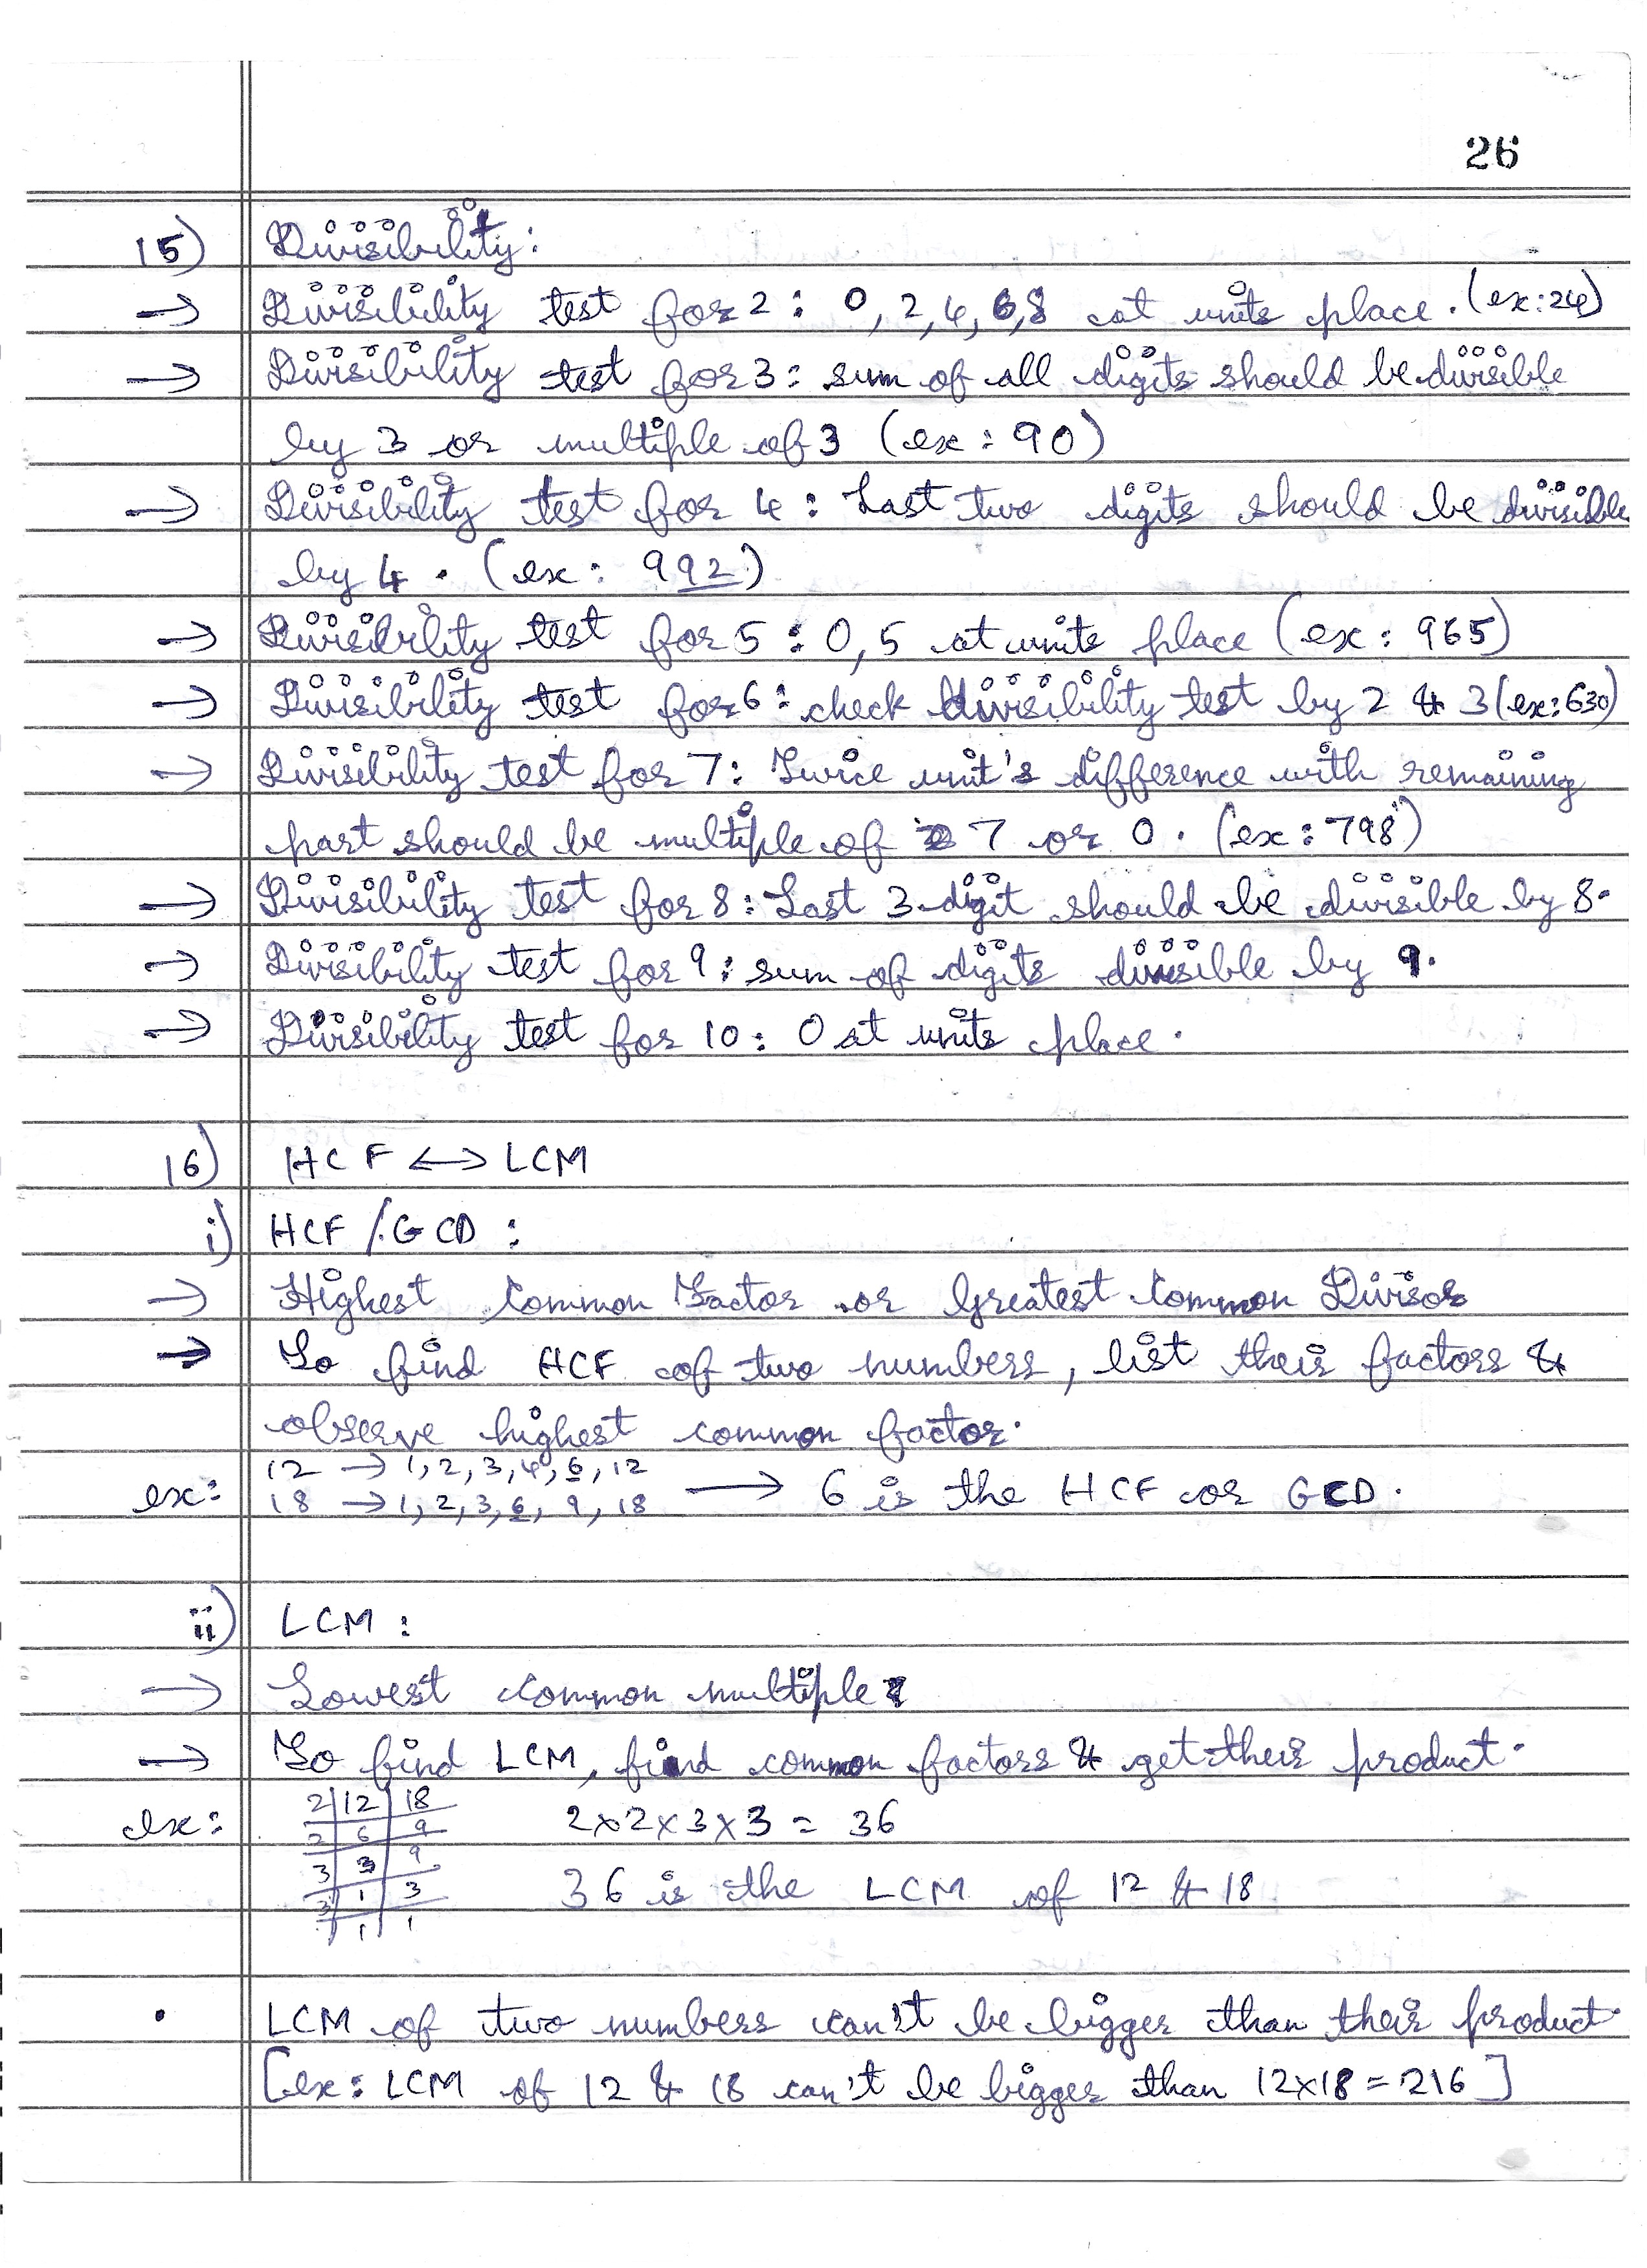 26
15) Divisibility:
→ Divisibility test for 2: 0, 2, 4, 6, 8 at units place. (ex: 24)
→ Divisibility test for 3: sum of all digits should be divisible
by 3 or multiple of 3 (ex: 90)
→ Divisibility test for 4: Last two digits should be divisible
by 4. (ex: 992)
→ Divisibility test for 5: 0, 5 at units place (ex: 965)
→ Divisibility test for 6: check divisibility test by 2 & 3 (ex: 630)
→ Divisibility test for 7: Twice unit's difference with remaining
part should be multiple of 7 or 0. (ex: 798)
→ Divisibility test for 8: Last 3 digit should be divisible by 8.
→ Divisibility test for 9: sum of digits divisible by 9.
→ Divisibility test for 10: 0 at units place.
16) HCF ↔ LCM
i) HCF / GCD :
→ Highest Common Factor or Greatest Common Divisor
→ To find HCF of two numbers, list their factors &
observe highest common factor.
12 → 1, 2, 3, 4, 6, 12
ex: 18 → 1, 2, 3, 6, 9, 18 → 6 is the HCF or GCD.
ii) LCM :
→ Lowest common multiple
→ To find LCM, find common factors & get their product.
2 | 12 | 18
ex: 2 | 6 | 9 2×2×3×3 = 36
3 | 3 | 9
3 | 1 | 3 36 is the LCM of 12 & 18
1 | 1
• LCM of two numbers can't be bigger than their product.
[ex: LCM of 12 & 18 can't be bigger than 12×18 = 216]